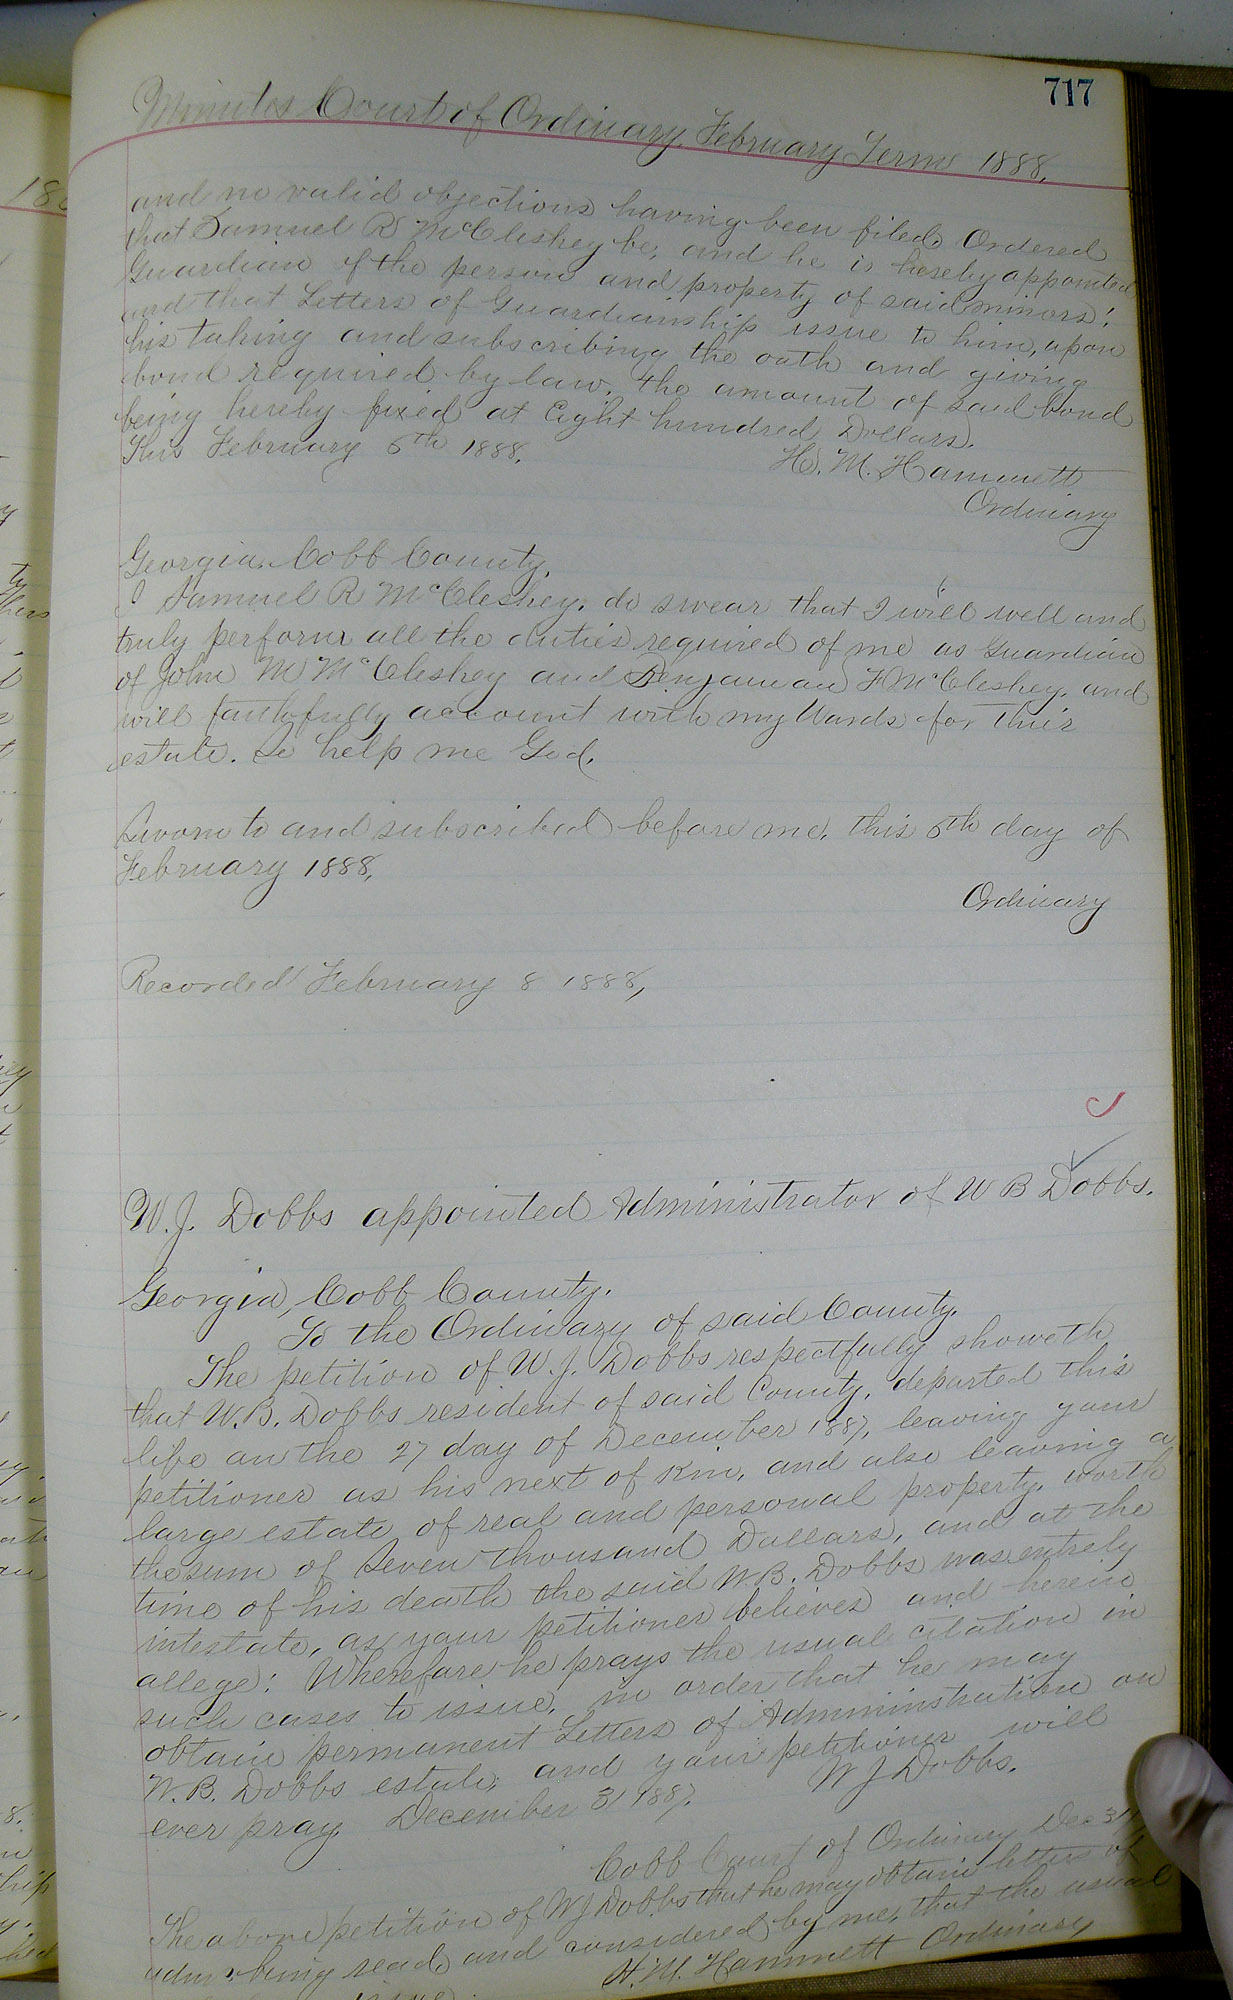 717
Minutes Court of Ordinary February Term 1888.
and no valid objections having been filed. Ordered
that Samuel R McCleskey be, and he is hereby appointed
Guardian of the person and property of said minors,
and that Letters of Guardianship issue to him, upon
his taking and subscribing the oath and giving
bond required by law, the amount of said bond
being hereby fixed at Eight hundred Dollars.
This February 6th 1888.
H. M. Hammett
Ordinary
Georgia, Cobb County.
I Samuel R McCleskey, do swear that I will well and
truly perform all the duties required of me as Guardian
of John M McCleskey and Benjaman F McCleskey, and
will faithfully account with my Wards for their
estate. So help me God.
Sworn to and subscribed before me, this 6th day of
February 1888.
Ordinary
Recorded February 8 1888,
W. J. Dobbs appointed Administrator of W B Dobbs.
Georgia, Cobb County.
To the Ordinary of said County.
The petition of W. J. Dobbs respectfully showeth
that W. B. Dobbs resident of said County, departed this
life on the 27 day of December 1887, leaving your
petitioner as his next of Kin, and also leaving a
large estate of real and personal property, worth
the sum of Seven thousand Dollars, and at the
time of his death the said W. B. Dobbs was entirely
intestate, as your petitioner believes and herein
allege: Wherefore he prays the usual citation in
such cases to issue, in order that he may
obtain permanent Letters of Admministration on
W. B. Dobbs estate, and your petitioner will
ever pray. December 31 1887.
W J Dobbs.
Cobb Court of Ordinary Dec 31
The above petition of W J Dobbs that he may obtain letters of
being read, and considered by me, that the usual
issue.
H. M. Hammett Ordinary